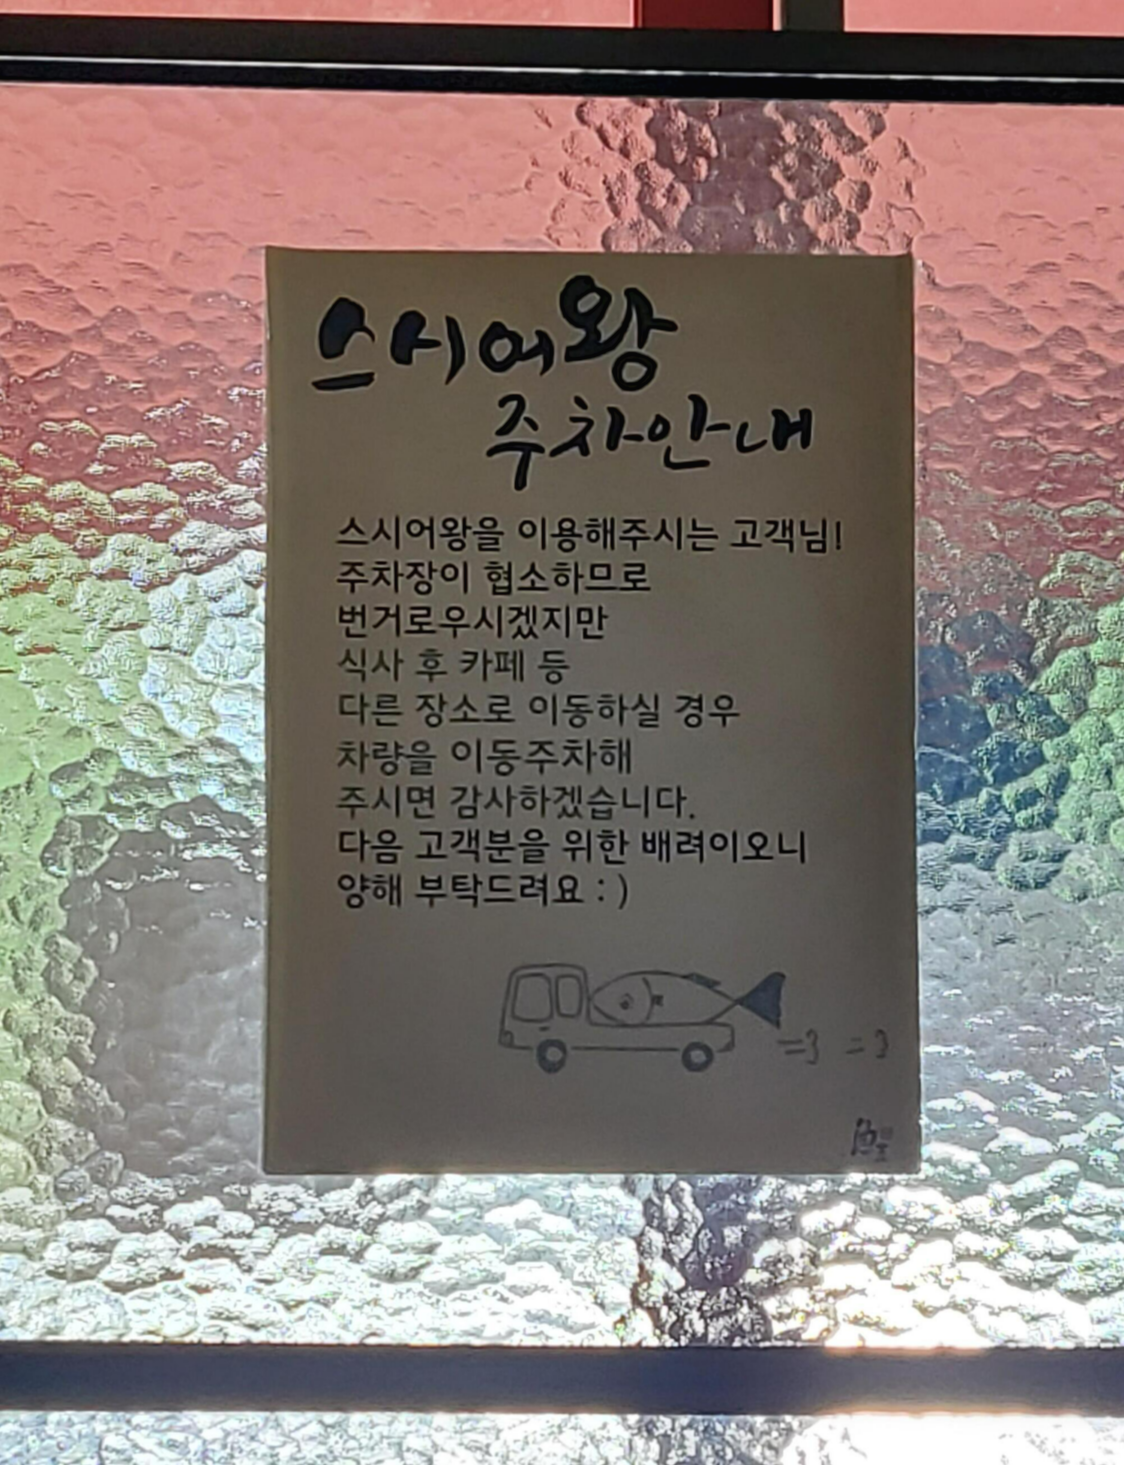 스시어왕
주차안내
스시어왕을 이용해주시는 고객님!
주차장이 협소하므로
번거로우시겠지만
식사 후 카페 등
다른 장소로 이동하실 경우
차량을 이동주차해
주시면 감사하겠습니다.
다음 고객분을 위한 배려이오니
양해 부탁드려요 : )
=3 =3